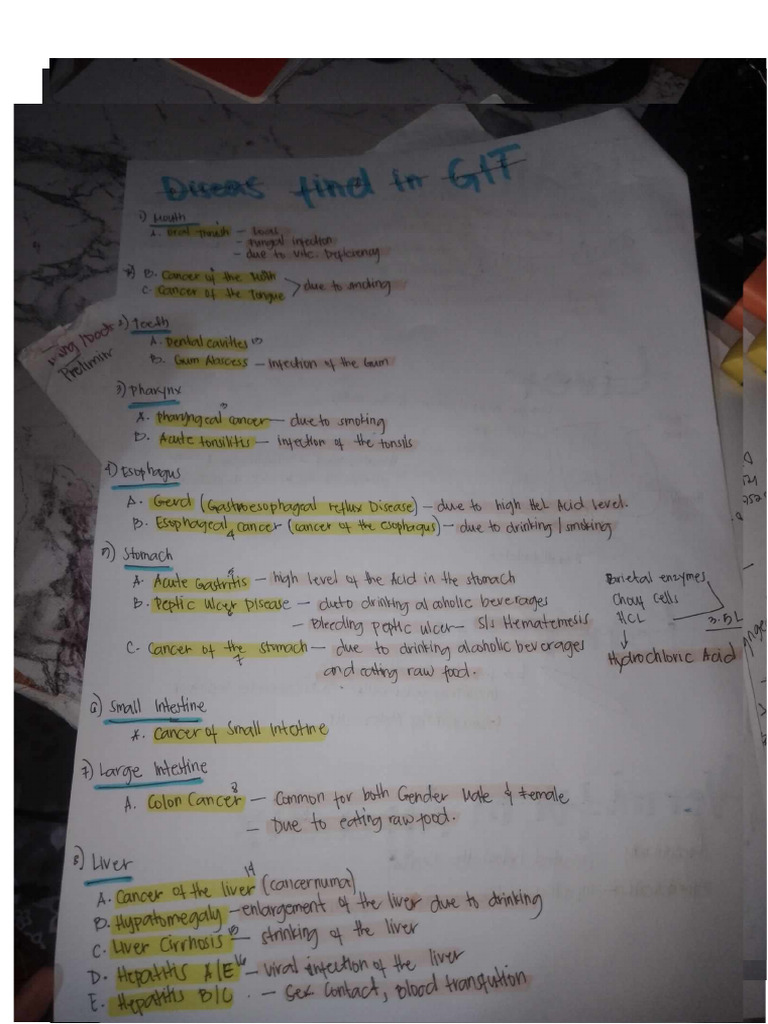 Diseas find in GIT
1) Mouth
A. Oral Thrush -
- Fungal infection
- due to Vit c. Deficiency
B. Cancer of the
C. Cancer of the Tongue > due to smoking
2) Teeth
A. Dental cavities
B. Gum Abscess - Infection of the Gum
Prelimin
3) Pharynx
A. Pharyngeal cancer - due to smoking
B. Acute tonsilitis - infection of the tonsils
4) Esophagus
A. Gerd (Gastroesophageal reflux Disease) - due to high HCL Acid level.
B. Esophageal cancer (cancer of the esophagus) - due to drinking / smoking
4
5) Stomach
A. Acute Gastritis - high level of the Acid in the stomach
B. Peptic ulcer Disease - dueto drinking alcoholic beverages
- Bleeding peptic ulcer - S/s Hematemesis
C. Cancer of the stomach - due to drinking alcoholic beverages
7
and eating raw food.
Parietal enzymes
Cells
HCL
3.5L
↓
Hydrochloric Acid
6) Small Intestine
A. Cancer of Small Intctine
7) Large Intestine
A. Colon Cancer - Common for both Gender Male & Female
- Due to eating raw food.
8) Liver
A. Cancer of the liver (cancernuma)
B. Hypatomegaly - enlargement of the liver due to drinking
C. Liver Cirrhosis - strinking of the liver
D. Hepatitis A/E - viral infection of the liver
E. Hepatitis B/C - Sex contact, Blood transfution